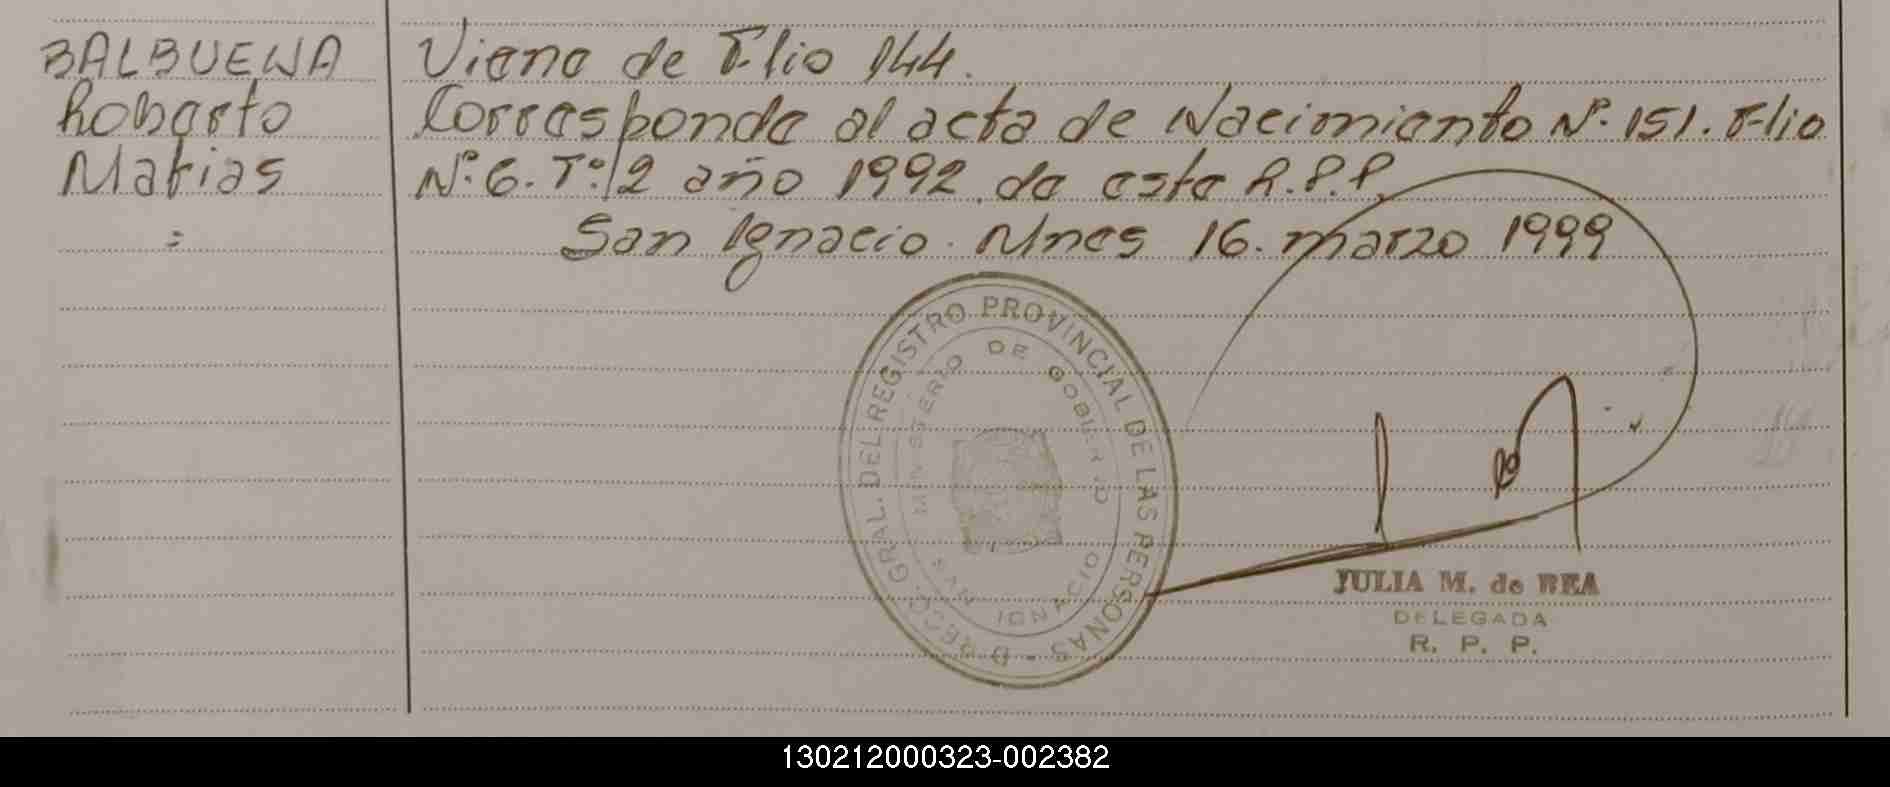 BALBUENA Viene de Flio 144.
Roberto Corresponde al acta de Nacimiento Nº. 151. Flio
Matias Nº. 6. Tº. 2 año 1992 de este R.P.P.
= San Ignacio. Mnes 16. marzo 1999
DIRECC. GRAL. DEL REGISTRO PROVINCIAL DE LAS PERSONAS -
MINISTERIO DE GOBIERNO
SAN IGNACIO
JULIA M. de REA
DELEGADA
R. P. P.
130212000323-002382